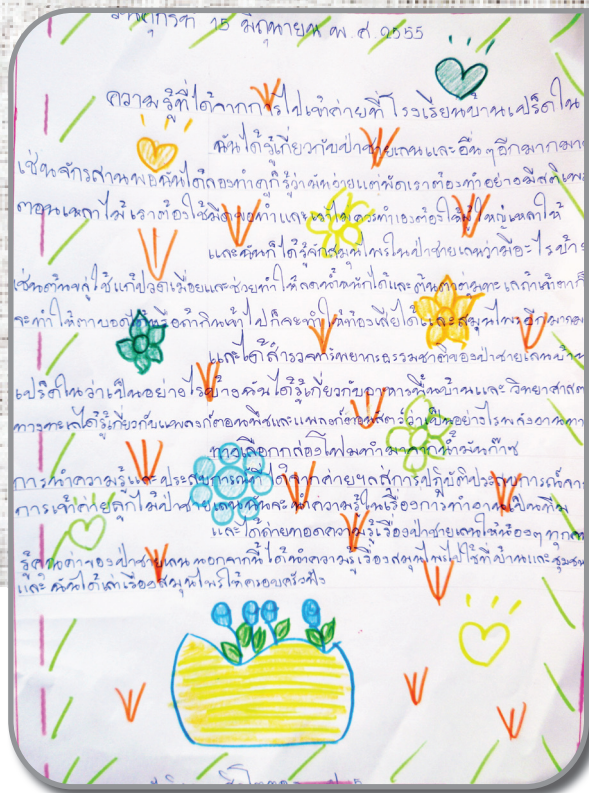 วันศุกร์ที่ 15 มิถุนายน พ.ศ.2555
ความรู้ที่ได้จากการไปเข้าค่ายที่โรงเรียนบ้านเปร็ดใน
ฉันได้รู้เกี่ยวกับป่าชายเลนและอื่นๆอีกมากมาย
เช่นจักรสานพอฉันได้ลองทำดูก็รู้ว่ามันง่ายแต่มัดเราต้องทำอย่างมีสติเพ
ตอนเหลาไม้เราต้องใช้มีดทำและเราไม่ควรทำเองต้องให้ผู้ใหญ่เหลาให้
และฉันก็ได้รู้จักสมุนไพรในป่าชายเลนว่ามีอะไรบ้าง
เช่นต้นขลู่ใช้แก้ปวดเมื่อยและช่วยทำให้ลดน้ำหนักได้และต้นตาตุ่มทะเลถ้าเข้าตาก็
จะทำให้ตาบอดได้หรือถ้ากินเข้าไปก็จะทำให้ท้องเสียได้และสมุนไพรอีกมากม
และได้สำรวจทรัพยากรธรรมชาติของป่าชายเลนบ้าน
เปร็ดในว่าเป็นอย่างไรบ้างฉันได้รู้เกี่ยวกับอาหารพื้นบ้านและวิทยาศาสต
ทางทะเลได้รู้เกี่ยวกับแพลงก์ตอนพืชและแพลงก์ตอนสัตว์ว่าเป็นอย่างไรพลังงานทา
ทางเลือกกล่องโฟมทำมาจากน้ำมันก๊าซ
การนำความรู้และประสบการณ์ที่ได้จากค่ายฯลสู่การปฏิบัติประสบการณ์จาก
การเข้าค่ายลูกไม้ป่าชายเลนฉันจะนำความรู้ในเรื่องการทำงานเป็นทีม
และได้ถ่ายทอดความรู้เรื่องป่าชายเลนให้น้องๆทุกคน
รู้คุณค่าของป่าชายเลนนอกจากนี้ได้นำความรู้เรื่องสมุนไพรไปใช้ที่บ้านและชุมชน
และฉันได้เล่าเรื่องสมุนไพรให้ครอบครัวฟัง